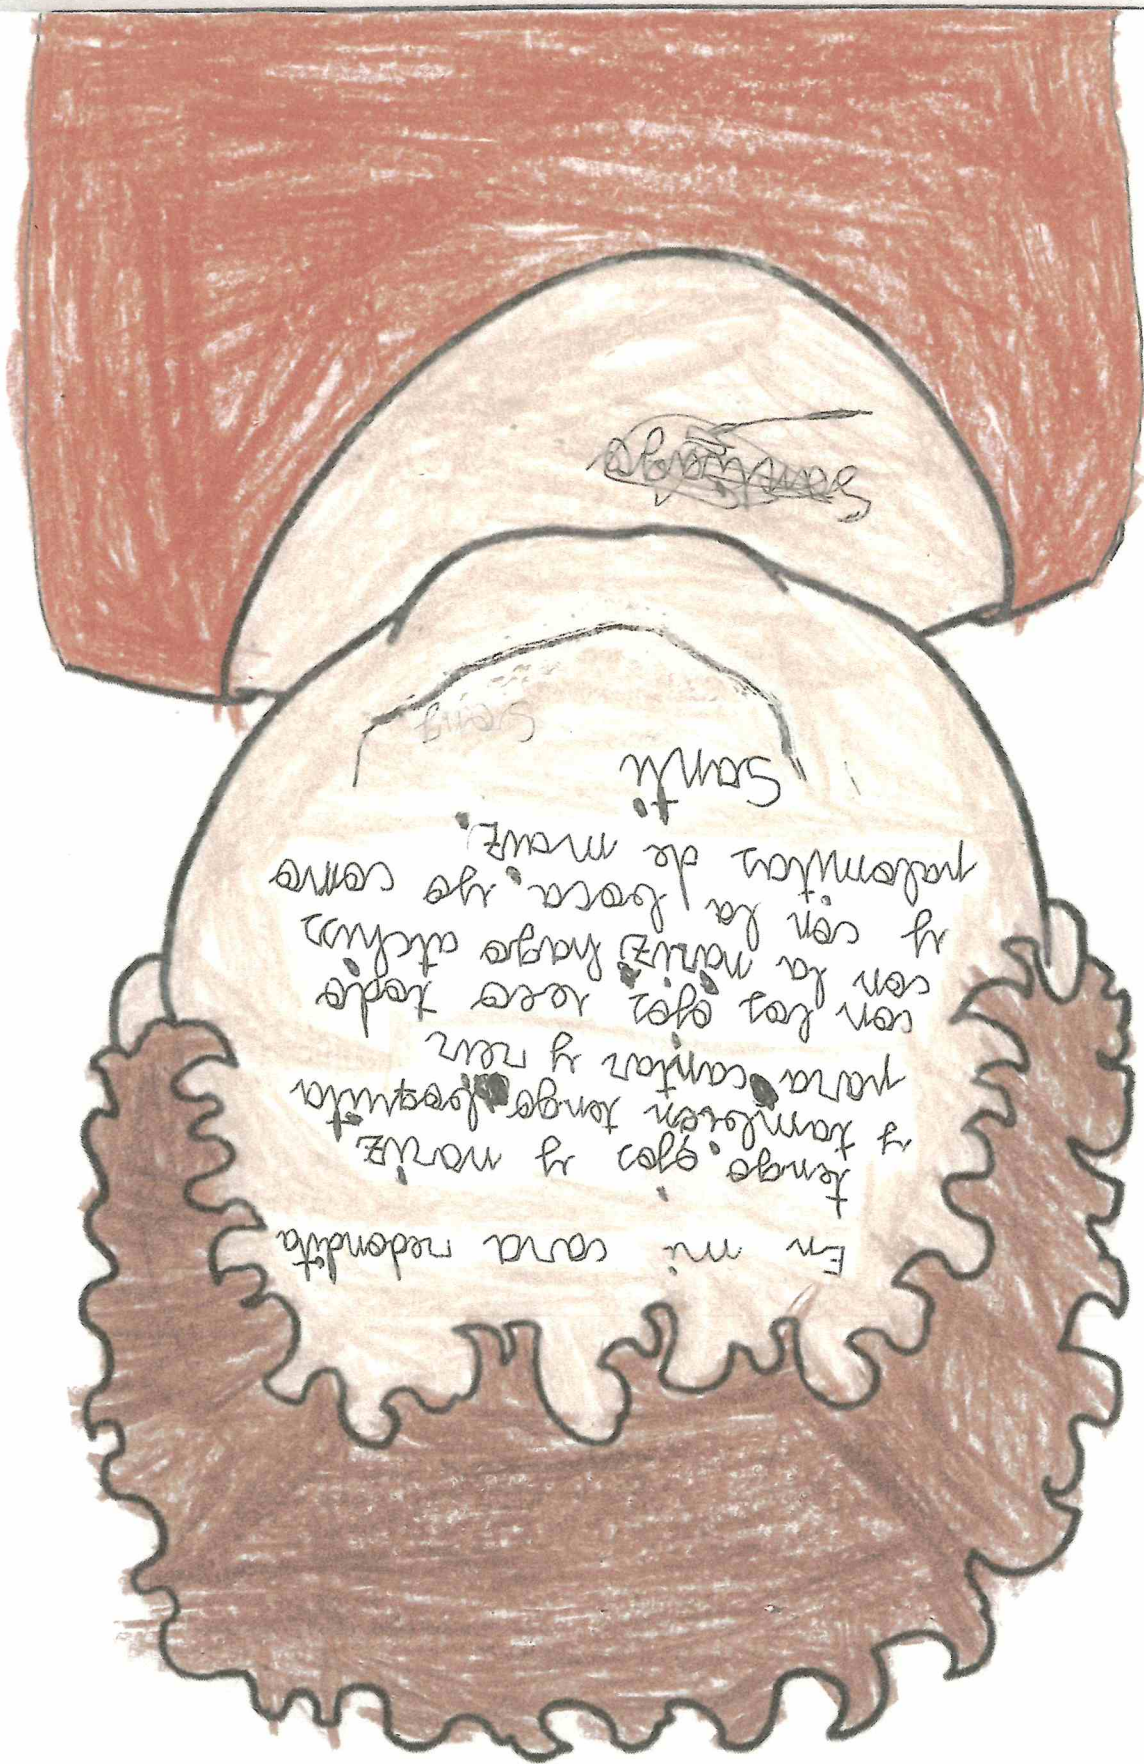 En mi cara redondita
tengo ojos y nariz
y tambien tengo boquita
para cantar y reir
con los ojos veo todo
con la nariz hago atchiss
y con la boca, yo como
palomitas de maiz.
Santi
Santiago